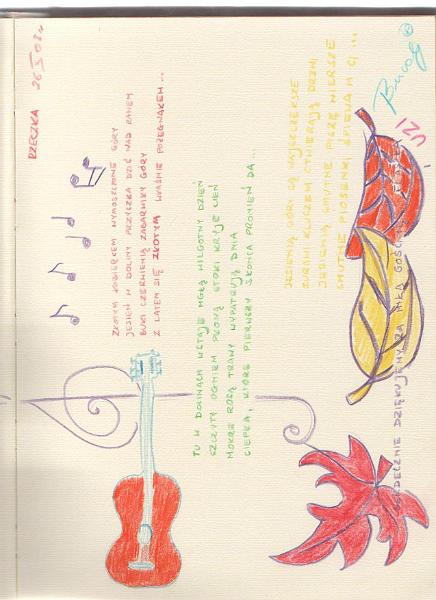 RZECZKA 26 X 08 r.
ZŁOTYM KOBIERCEM WYMOSZCZONE GÓRY
JESIEŃ W DOLINY PRZYSZŁA DZIŚ NAD RANEM
BUKI CZERWIENIĄ ZABARWIŁY GÓRY
Z LATEM SIĘ ZŁOTYM WŁAŚNIE POŻEGNAŁEM...
TU W DOLINACH WSTAJE MGŁĄ WILGOTNY DZIEŃ
SZCZYTY OGNIEM PŁONĄ STOKI KRYJE CIEŃ
MOKRE ROSĄ TRAWY WYPATRUJĄ DNIA
CIEPŁA, KTÓRE PIERWSZY SŁOŃCA PROMIEŃ DA...
JESIENIĄ GÓRY SĄ NAJSZCZERSZE
ŻURAWI KLUCZEM OTWIERAJĄ DRZWI
JESIENIĄ SMUTNE PISZĘ WIERSZE
SMUTNE PIOSENKI ŚPIEWAM CI...
SERDECZNIE DZIĘKUJEMY ZA MIŁĄ
UZI